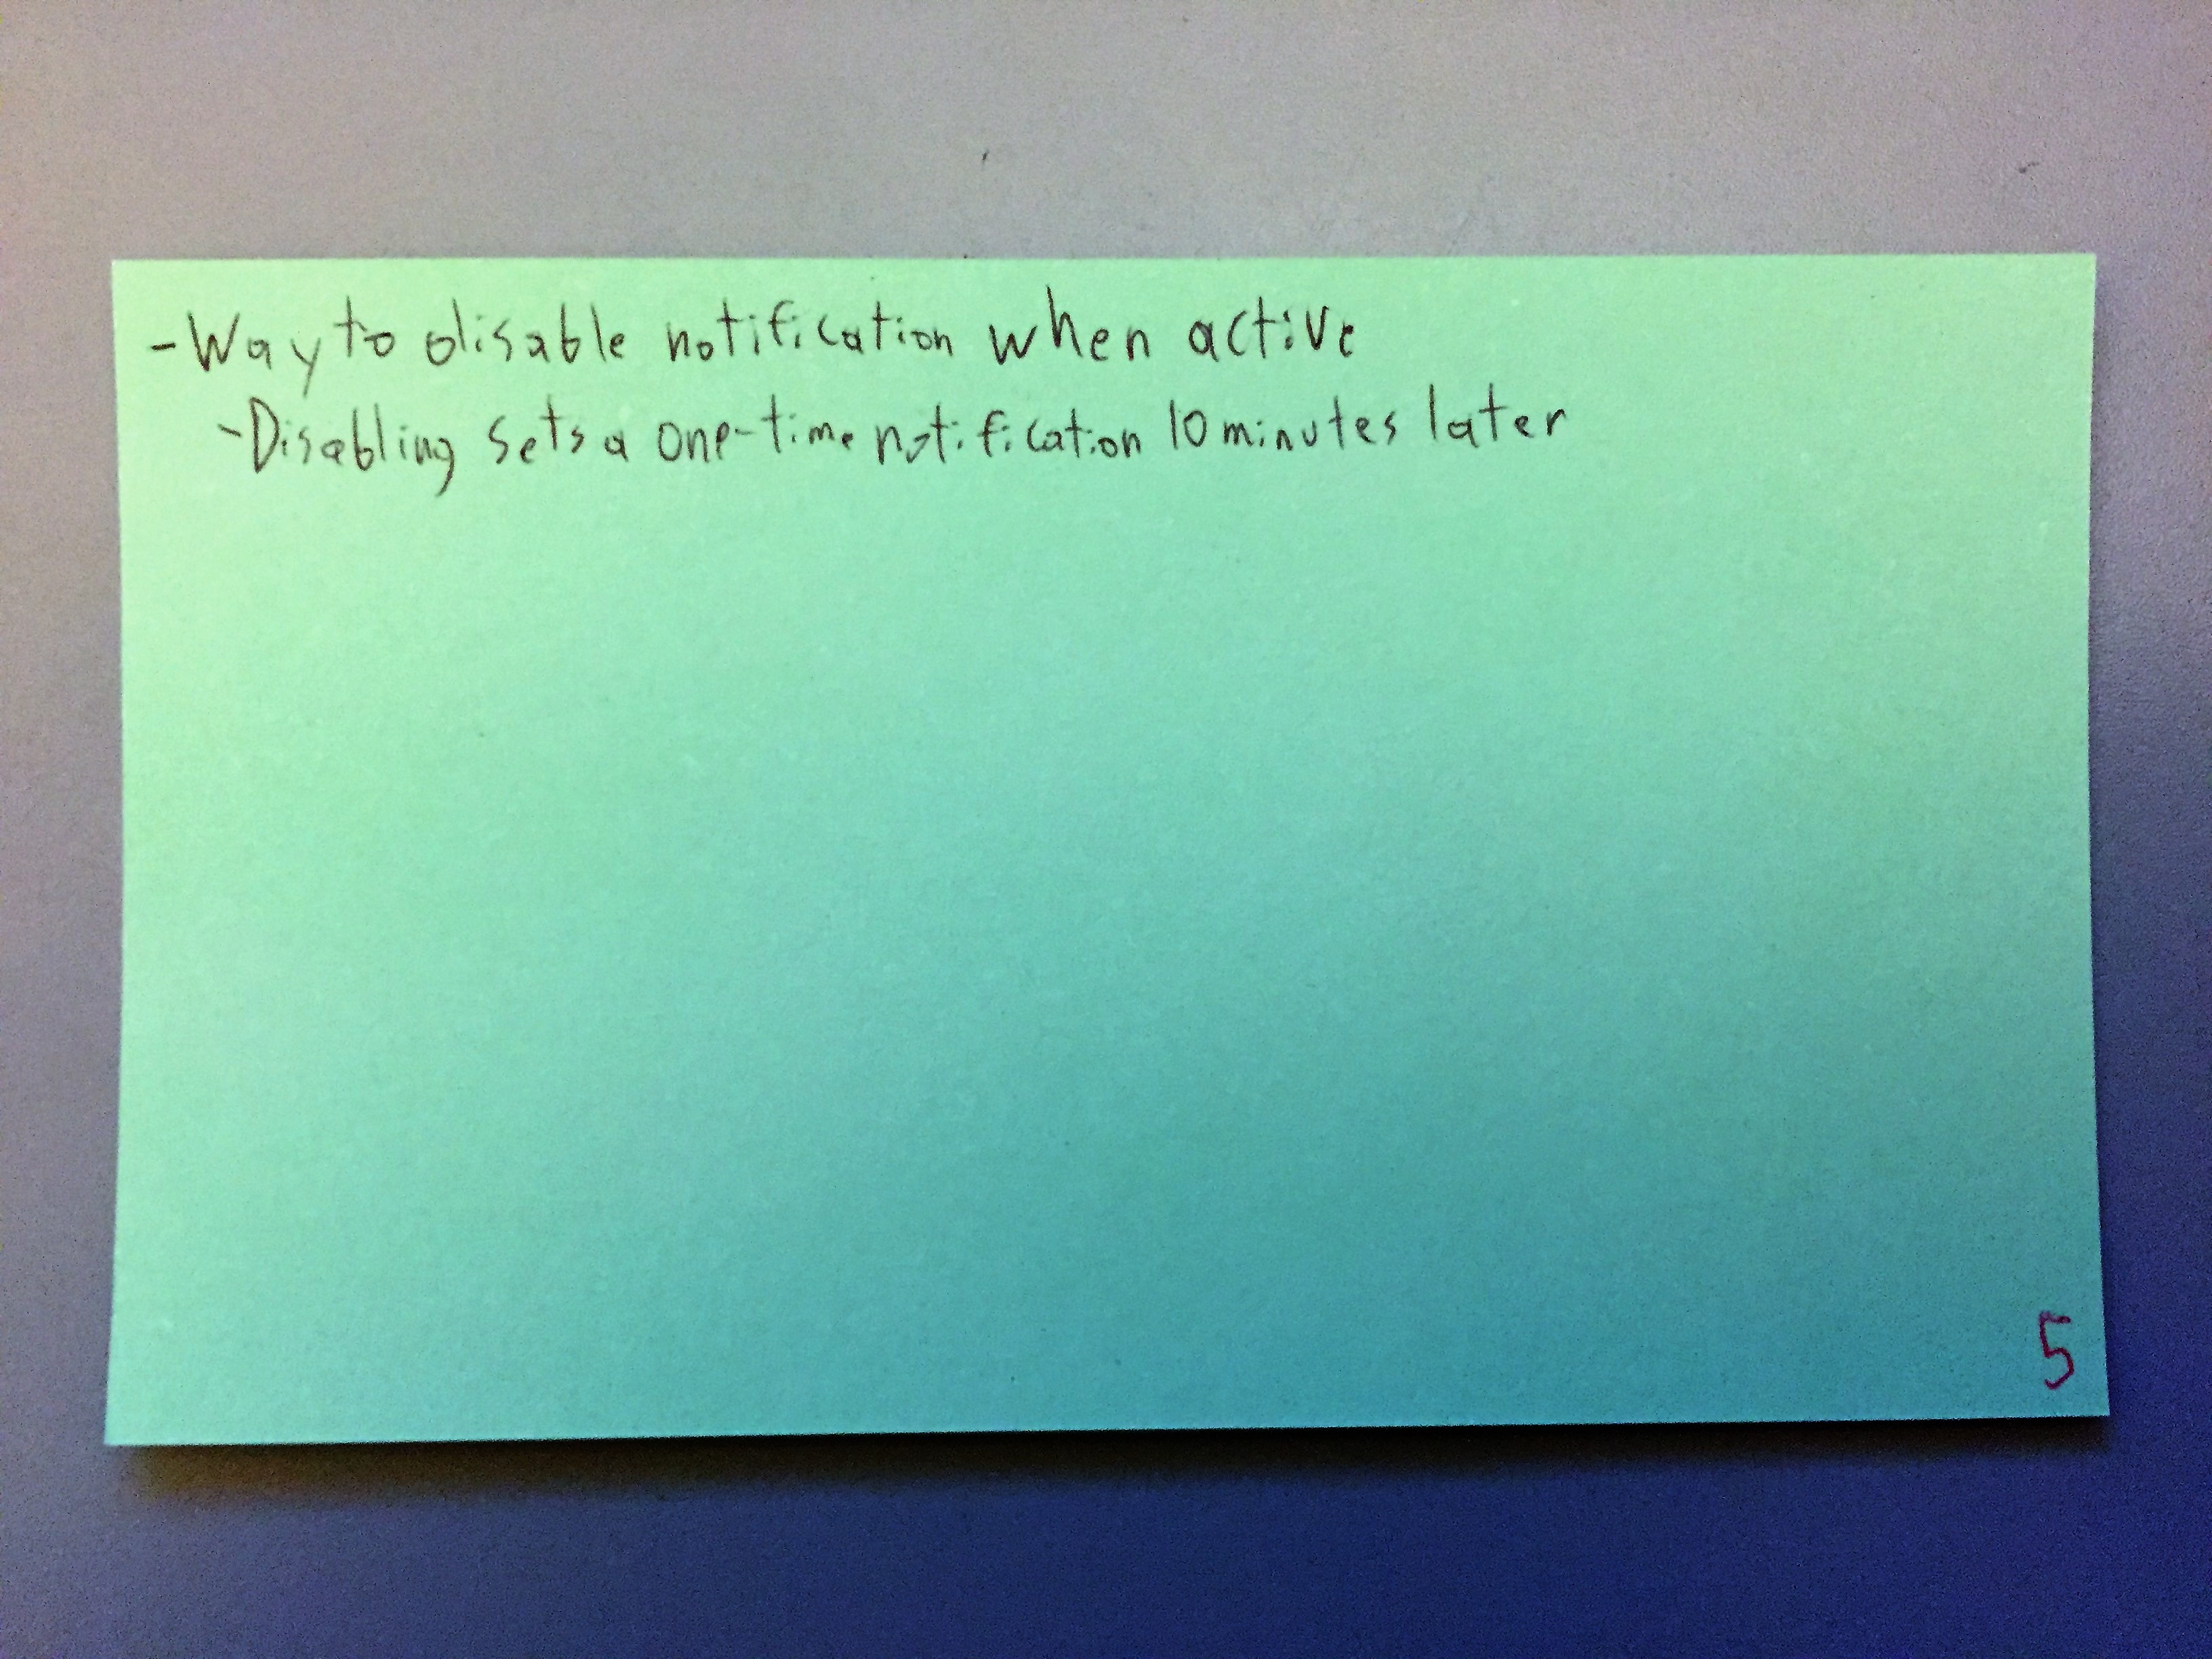 -Way to disable notification when active
-Disabling sets a one-time notification 10 minutes later
5